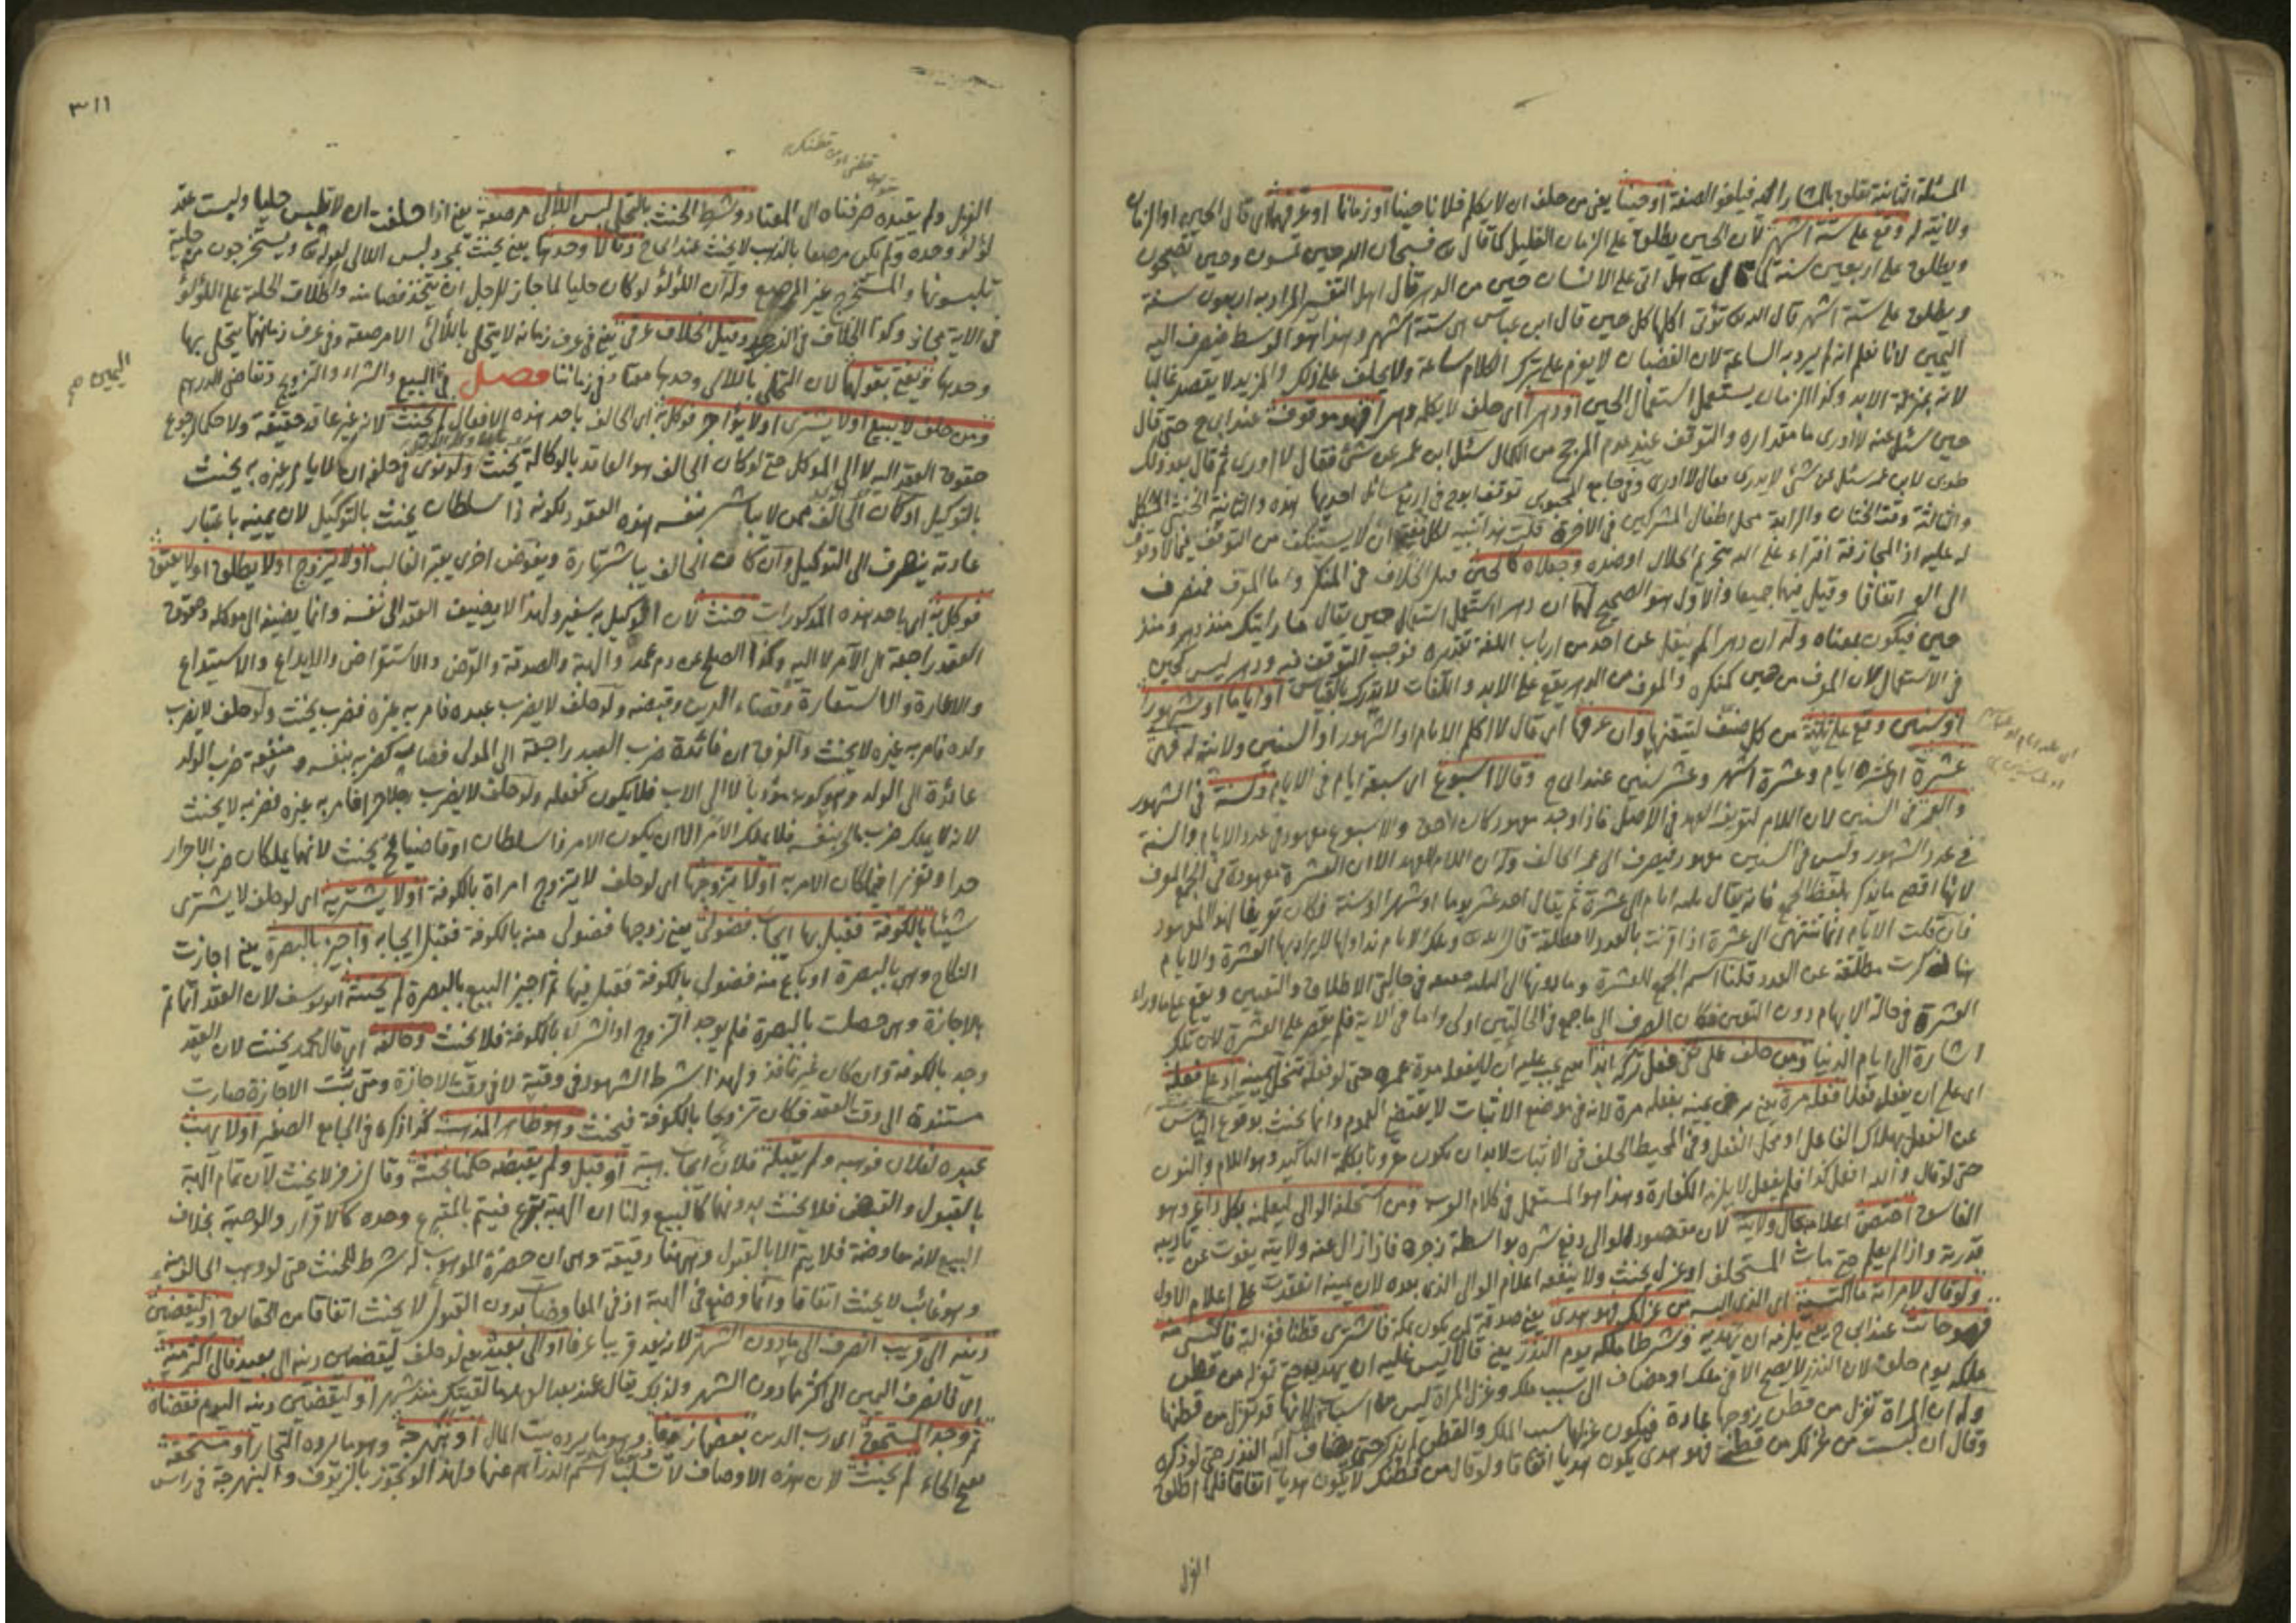 المسئلة الثانية تتعلق بالمشار اليه فيلغو الصفة او حينا يعني من حلف ان لا يكلم فلانا حينا او زمانا او عرفهما اي قال الحين او الزمان
ولا نية له وقع على ستة اشهر لان الحين يطلق على الزمان القليل كما قال تعالى فسبحان الله حين تمسون وحين تصبحون
ويطلق على اربعين سنة كما قال تعالى هل اتى على الانسان حين من الدهر قال اهل التفسير المراد به اربعون سنة
ويطلق على ستة اشهر قال الله تعالى تؤتى اكلها كل حين قال ابن عباس هي ستة اشهر وهذا هو الوسط فينصرف اليه
اليمين لانا نعلم انه لم يرد به الساعة لان الغضبان لا يعزم على ترك الكلام ساعة ولا يحلف على ذلك والمزيد لا يقصد غالبا
لانه بمنزلة الابد وكذا الزمان يستعمل استعمال الحين او دهرا اي حلف لا يكلمه دهرا فهو موقوفة عند ابي ح حتى قال
حين سئل عنه لا ادري ما مقداره والتوقف عند عدم المرجح من الكمال سئل ابن عمر عن شئ فقال لا ادري ثم قال بعد ذلك
طوبى لابن عمر سئل عن شئ لا يدرى فقال لا ادري وفي جامع المحبوبي توقف ابو ح في اربع مسائل احديها هذه والثانية الخنثى المشكل
والثالثة وقت الختان والرابعة محل اطفال المشركين في الآخرة قلت هذا تنبيه لكل مفت ان لا يستنكف من التوقف فيما لا وقوف
له عليه اذ المجازفة افتراء على الله بتحريم الحلال او ضده وجعلاه كالحين قيل الخلاف في المنكر واما المعرف فمنصرف
الى العمر اتفاقا وقيل فيهما جميعا والاول هو الصحيح لهما ان دهرا استعمل استعمال حين يقال ما رأيتك منذ دهر ومنذ
حين فيكون بمعناه وله ان دهرا لم ينقل عن احد من ارباب اللغة تقديره فوجب التوقف فيه ودهر ليس كحين
في الاستعمال لان المعرف من حين كمنكره والمعرف من الدهر يقع على الابد واللغات لا تدرك بالقياس او اياما او شهورا
او سنين وقع على ثلثة من كل صنف لتيقنها وان عرفها اي قال لا اكلم الايام او الشهور او السنين ولا نية له فهي
عشرة اي عشرة ايام وعشرة اشهر وعشر سنين عند ابي ح وقالا اسبوع اي سبعة ايام في الايام وسنة في الشهور
والعمر في السنين لان اللام لتعريف العهد في الاصل فاذا وجد معهود كان احق والاسبوع معهود في عدد الايام والسنة
في عدد الشهور وليس في السنين معهود فينصرف الى عمر الحالف وله ان اللام للعهد الا ان العشرة معهودة في الجمع المعرف
لانها اقصى ما يذكر بلفظ الجمع فانه يقال ثلثة ايام الى عشرة ثم يقال احد عشر يوما او شهرا او سنة فكان تعريفا لهذا المعهود
فان قلت الايام انما تنتهي الى عشرة اذا قرنت بالعدد لا مطلقة قال الله تعالى وتلك الايام نداولها لم يرد بها العشرة والايام
هنا ذكرت مطلقة عن العدد قلنا اسم الجمع للعشرة وما دونها الى الثلثة حقيقة في حالتي الاطلاق والتعيين ويقع على ما وراء
العشرة في حالة الابهام دون التعيين فكان الصرف الى ما جمع في الحالتين اولى واما في الآية فلم يقصر على العشرة لان تلك
اشارة الى ايام الدنيا ومن حلف على شئ فعل تركه ابدا يجب عليه ان لا يفعله مدة عمره حتى لو فعله تنحل يمينه او على فعله
اي على ان يفعله فعلا فعله مرة يعني بر في يمينه بفعله مرة لانه في موضع الاثبات لا يقتضي العموم وانما يحنث بوقوع اليأس
عن الفعل بهلاك الفاعل او محل الفعل وفي المحيط الحلف في الاثبات لا بد ان يكون مقرونا بكلمة التأكيد وهو اللام والنون
حتى لو قال والله افعل كذا فلم يفعل لا يلزمه الكفارة وهذا هو المستعمل في كلام العرب ومن استحلفه الوالي ليعلمنه بكل داعر وهو
الفاسق اختص اعلامه بحال ولايته لان مقصود الوالي دفع شره بواسطة زجره فاذا زال عنه ولايته يفوت عن تأديبه
قدرته واذا لم يعلم حتى مات المستحلف او عزل يحنث ولا ينفعه اعلام الوالي الذي بعده لان يمينه انعقدت على اعلام الاول
ولو قال لامرأته ما اكتسيته اي الذي البسه من غزلك فهو هدي يعني صدقة لمن يكون بمكة فاشترى قطنا فغزلته فاكتسى منه
فهو حانث عند ابي ح يعني يلزمه ان يهديه وشرطا ملكه يوم النذر يعني قالا ليس عليه ان يهديه حتى تغزل من قطن
ملكه يوم حلف لان النذر لا يصح الا في ملك او مضاف الى سبب ملك وغزل المرأة ليس من اسبابه لانها قد تغزل من قطنها
وله ان المرأة تغزل من قطن زوجها عادة فيكون غزلها سبب الملك والقطن لم يذكر حتى يضاف اليه النذر حتى لو ذكره
وقال ان لبست من غزلك من قطني فهو هدي يكون هديا اتفاقا ولو قال من قطنك لا يكون هديا اتفاقا فلما اطلق
الغزل
٣١١
الغزل ولم يقيده صرفناه الى المعتاد وشرط الحنث بالتحلي لبس اللآلي مرصعة يعني اذا حلفت ان لا تلبس حليا ولبست عقد
لؤلؤ وحده ولم يكن مرصعا بالذهب لا يحنث عند ابي ح وقالا وحدها يعني يحنث بمجرد لبس اللآلي لقوله تعالى ويستخرجون منه حلية
تلبسونها والمستخرج غير المرصع وله ان اللؤلؤ لو كان حليا لما جاز للرجل ان يتخذ فصا منه واطلاق الحلية على اللؤلؤ
في الآية مجاز وكذا الخلاف في الزبرجد وقيل الخلاف عرفي يعني في عرف زمانه لا يتحلى باللآلي الا مرصعة وفي عرف زمانهما يتحلى بها
وحدها ويفتى بقولهما لان التحلي باللآلي وحدها معتاد في زماننا فصل في البيع والشراء والتزوج وتقاضى الدرهم
اليمين صح
ومن حلف لا يبيع او لا يشتري او لا يؤاجر فوكل به اي الحالف باحد هذه الافعال لم يحنث لانه غير عاقد حقيقة ولا حكما لرجوع
حقوق العقد اليه لا الى الموكل حتى لو كان الحالف هو العاقد بالوكالة يحنث ولو نوى في حلفه ان لا يأمر غيره به يحنث
بالتوكيل او كان الحالف ممن لا يباشر بنفسه هذه العقود لكونه ذا سلطان يحنث بالتوكيل لان يمينه باعتبار
عادته ينصرف الى التوكيل وان كان الحالف يباشر تارة ويفوض اخرى يعتبر الغالب او لا يتزوج او لا يطلق او لا يعتق
فوكل به اي باحد هذه المذكورات حنث لان الوكيل به سفير ولهذا لا يضيف العقد الى نفسه وانما يضيفه الى موكله وحقوق
العقد راجعة الى الآمر لا اليه وكذا الصلح عن دم عمد والهبة والصدقة والقرض والاستقراض والايداع والاستيداع
والاعارة والاستعارة وقضاء الدين وقبضه ولو حلف لا يضرب عبده فامر به غيره فضرب يحنث ولو حلف لا يضرب
ولده فامر به غيره لا يحنث والفرق ان فائدة ضرب العبد راجعة الى المولى فصار كضربه بنفسه ومنفعة ضرب الولد
عائدة الى الولد وهو كونه مؤدبا لا الى الاب فلا يكون كفعله ولو حلف لا يضرب رجلا حرا فامر به غيره فضربه لا يحنث
لانه لا يملك ضربه بنفسه فلا يملك الامر الا ان يكون الآمر ذا سلطان او قاضيا فح يحنث لانهما يملكان ضرب الاحرار
حدا وتعزيرا فيملكان الامر به او لا يتزوجها اي لو حلف لا يتزوج امرأة بالكوفة او لا يشتريه اي لو حلف لا يشتري
شيئا بالكوفة فقبل بها ايجاب فضولي يعني زوجها فضولي منه بالكوفة فقبل ايجابه واجيز بالبصرة يعني اجازت
النكاح وهي بالبصرة او باع منه فضولي بالكوفة فقبل فيها ثم اجيز البيع بالبصرة لم يحنثه ابو يوسف لان العقد انما تم
بالاجازة وهي حصلت بالبصرة فلم يوجد التزوج او الشراء بالكوفة فلا يحنث وخالفه اي قال محمد يحنث لان العقد
وجد بالكوفة وان كان غير نافذ ولهذا يشترط الشهود في وقته لا في وقت الاجازة ومتى ثبت الاجازة صارت
مستندة الى وقت العقد فكان تزوجا بالكوفة فيحنث وهو ظاهر المذهب كذا ذكره في الجامع الصغير او لا يهب
عبده لفلان فوهبه ولم يقبله فلان ايجاب هبته او قبل ولم يقبضه حكمنا بحنثه وقال زفر لا يحنث لان تمام الهبة
بالقبول والقبض فلا يحنث بدونهما كالبيع ولنا ان الهبة تبرع فيتم بالمتبرع وحده كالاقرار والوصية بخلاف
البيع لانه معاوضة فلا يتم الا بالقبول وههنا دقيقة وهي ان حضرة الموهوب له شرط للحنث حتى لو وهب الحالف منه
وهو غائب لا يحنث اتفاقا وانما وضع في الهبة اذ في المعاوضات بدون القبول لا يحنث اتفاقا من الحقائق او ليقضين
دينه الى قريب انصرف الى ما دون الشهر لانه يعد قريبا عرفا او الى بعيد يعني لو حلف ليقضين دينه الى بعيد فالى اكثر منه
اي فانصرف اليمين الى اكثر مما دون الشهر ولذلك يقال عند بعد العهد ما لقيتك منذ شهر او ليقضين دينه اليوم فقضاه
ثم وجد المستحق اي رب الدين بعضها زيوفا وهو ما يرده بيت المال او نبهرجة وهو ما يرده التجار او مستحقة
بفتح الحاء لم يحنث لان هذه الاوصاف لا تسلب اسم الدراهم عنها ولهذا لو تجوز بالزيوف والنبهرجة في رأس